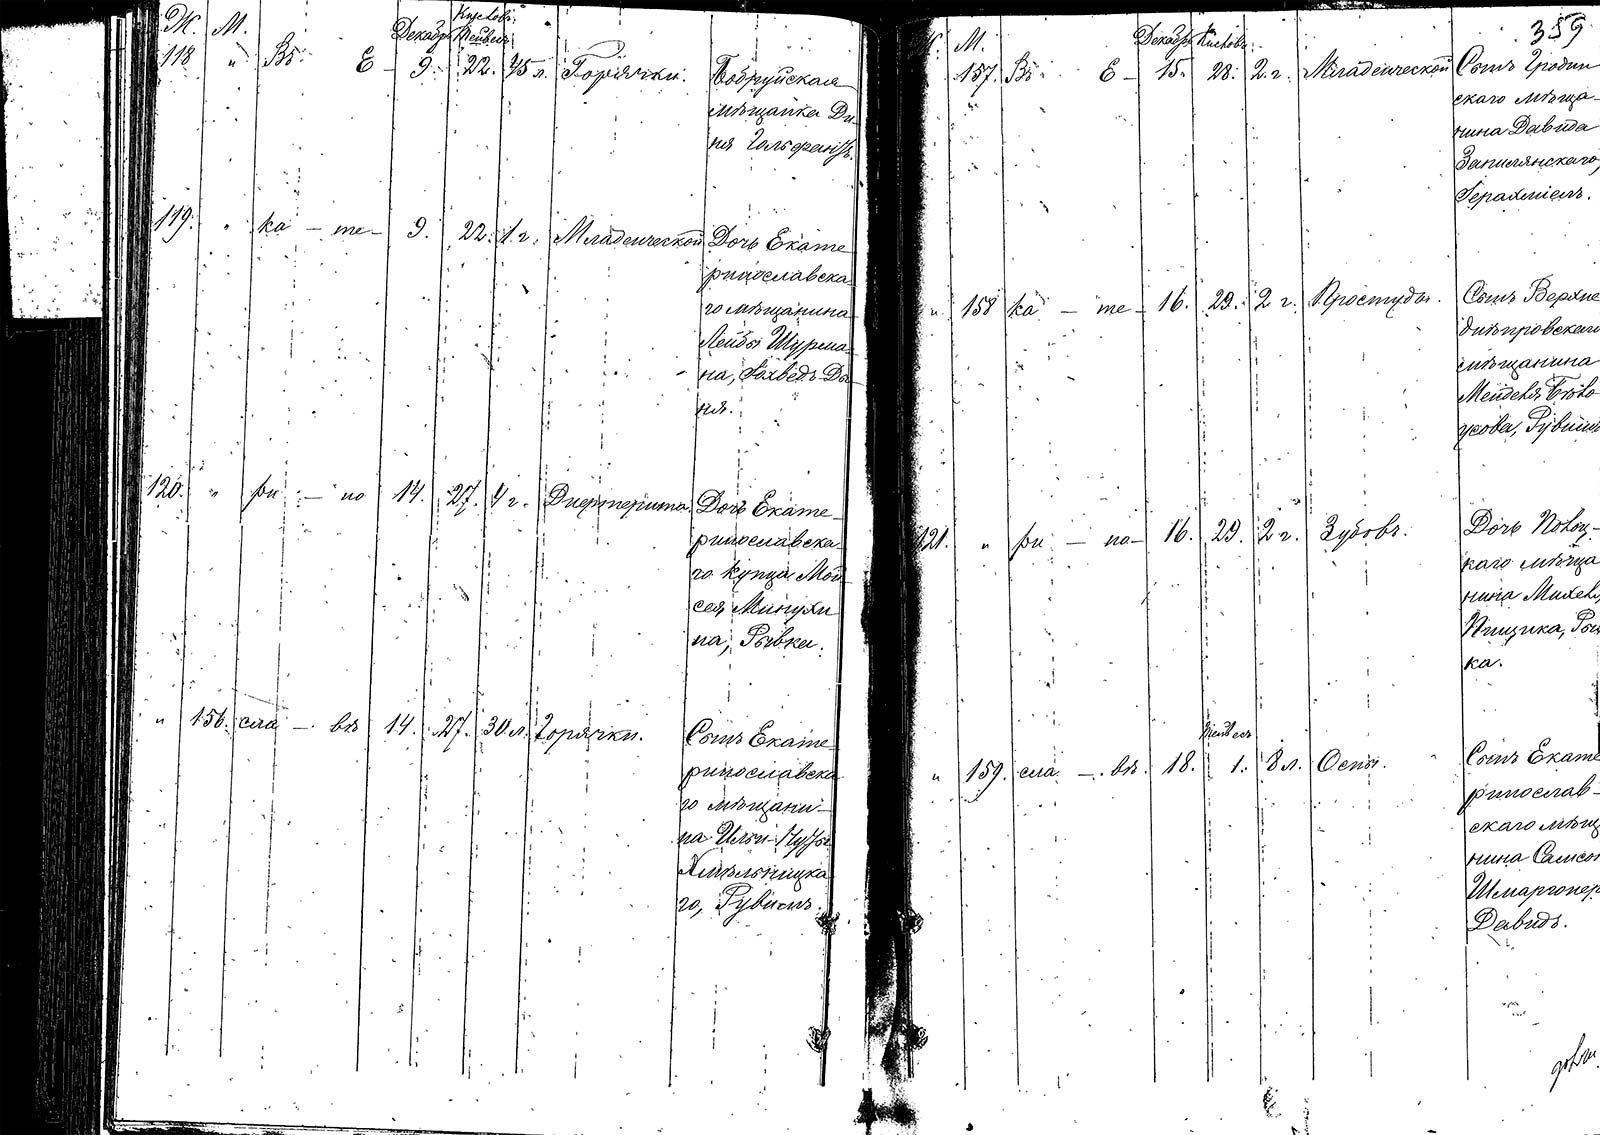 Ж. М. Декабр. Кислевъ Тейвесъ
118 " Въ Е – 9. 22. 45 л. Горячки. Бобруйская
мѣщанка Ды-
ня Гольфандъ.
119. " ка – те – 9. 22. 1 г. Младенческой Дочь Екате
ринославска
го мѣщанина
Лейбы Шурма-
на, Іохведъ-Ды
ня.
120. " ри – но 14. 27. 4 г. Дифтерита. Дочь Екате-
ринославска-
го купца Мои
сея Минухи
на, Рывка.
" 156. сла – вѣ 14. 27. 30 л. Горячки. Сынъ Екате
ринославска
го мѣщани-
на Ильи-Нуты
Хмѣльницка
го, Рувимъ.
359
Ж. М. Декабр. Кислевъ
157. Въ Е – 15. 28. 2 г. Младенческой Сынъ Гродн
скаго мѣща-
нина Давида
Заполянскаго,
Іерахміель.
" 158 ка – те – 16. 29. 2 г. Простуды. Сынъ Верхне
днѣпровскаго
мѣщанина
Менделя Бѣло
усова, Рувимъ
121. " ри – но – 16. 29. 2 г. Зубовъ. Дочь
каго мѣща
нина Михеля
Пищика, Рыв
ка.
Тейвесъ
" 159. сла – вѣ. 18. 1. 8 л. Оспы. Сынъ Екате
ринослав-
скаго мѣщ
нина Самсон
Шмаргонер
Давидъ.